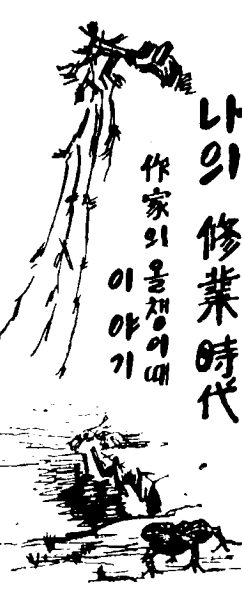 나의 修業時代
作家의 올챙이때
이야기